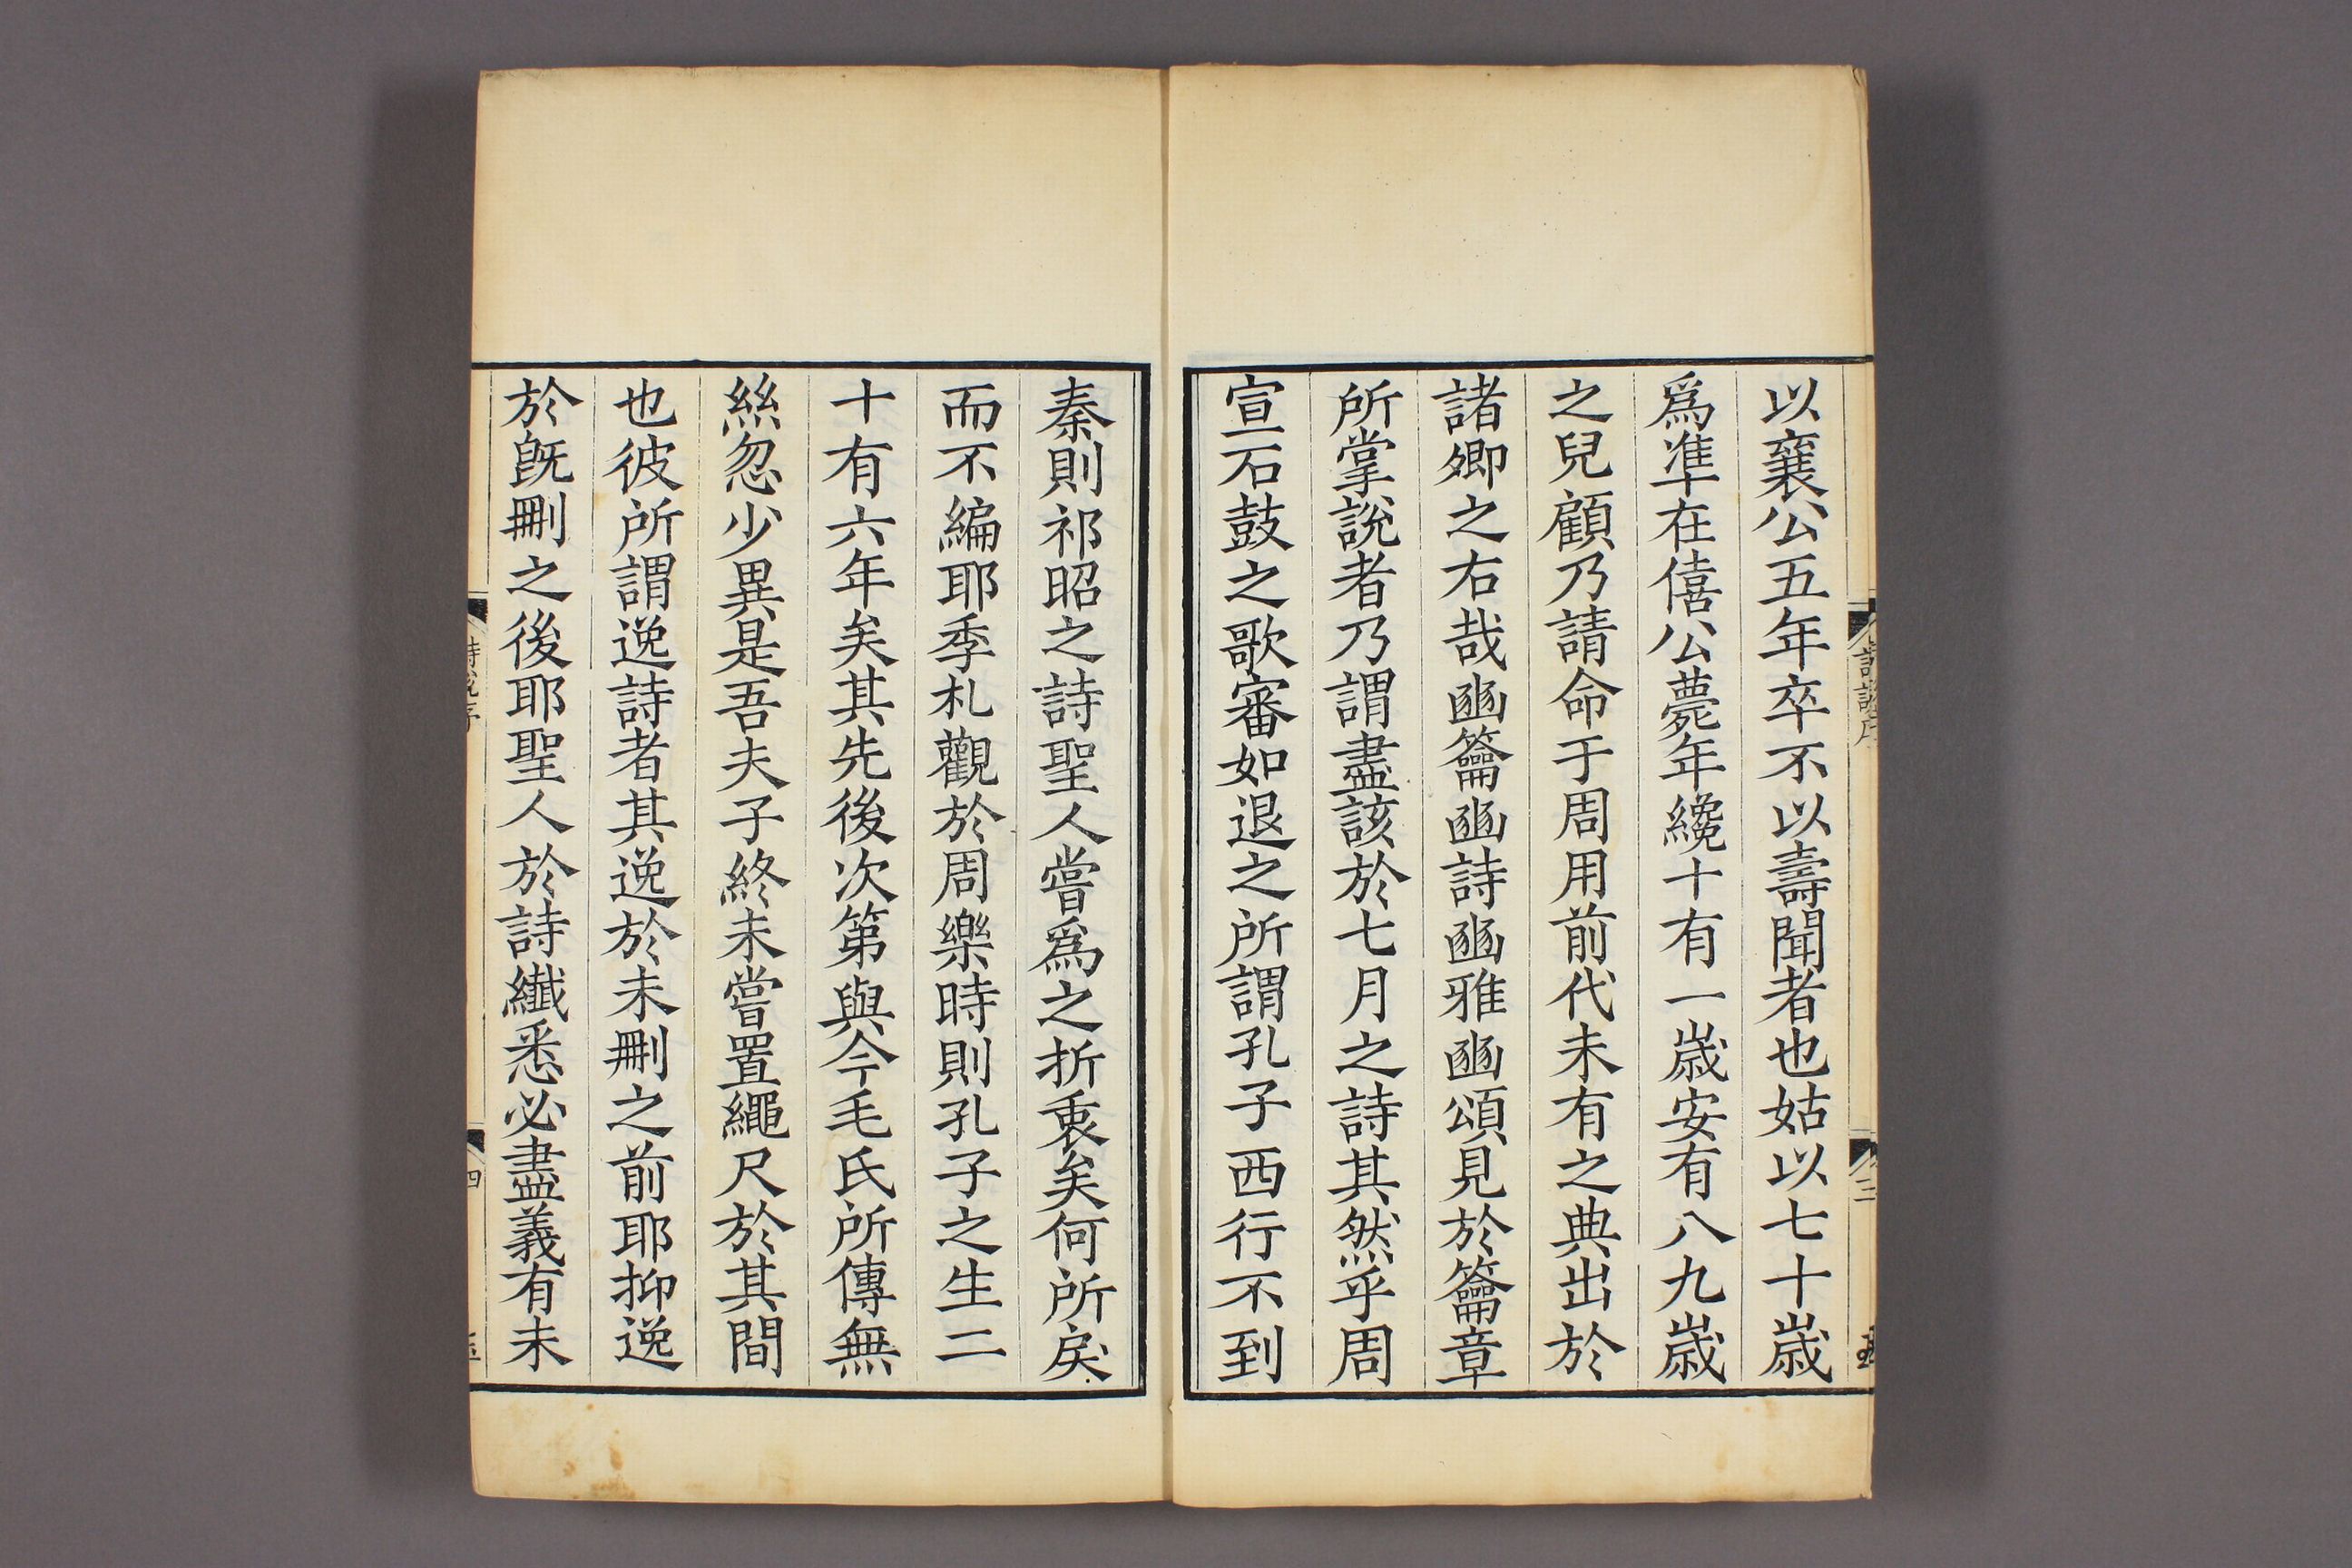 以襄公五年卒不以壽聞者也姑以七十歲
爲準在僖公薨年纔十有一歲安有八九歲
之兒顧乃請命于周用前代未有之典出於
諸卿之右哉豳籥豳詩豳雅豳頌見於籥章
所掌說者乃謂盡該於七月之詩其然乎周
宣石鼓之歌審如退之所謂孔子西行不到
秦則祁昭之詩聖人嘗爲之折衷矣何所戾
而不編耶季札觀於周樂時則孔子之生二
十有六年矣其先後次第與今毛氏所傳無
絲忽少異是吾夫子終未嘗置繩尺於其間
也彼所謂逸詩者其逸於未刪之前耶抑逸
於旣刪之後耶聖人於詩纖悉必盡義有未